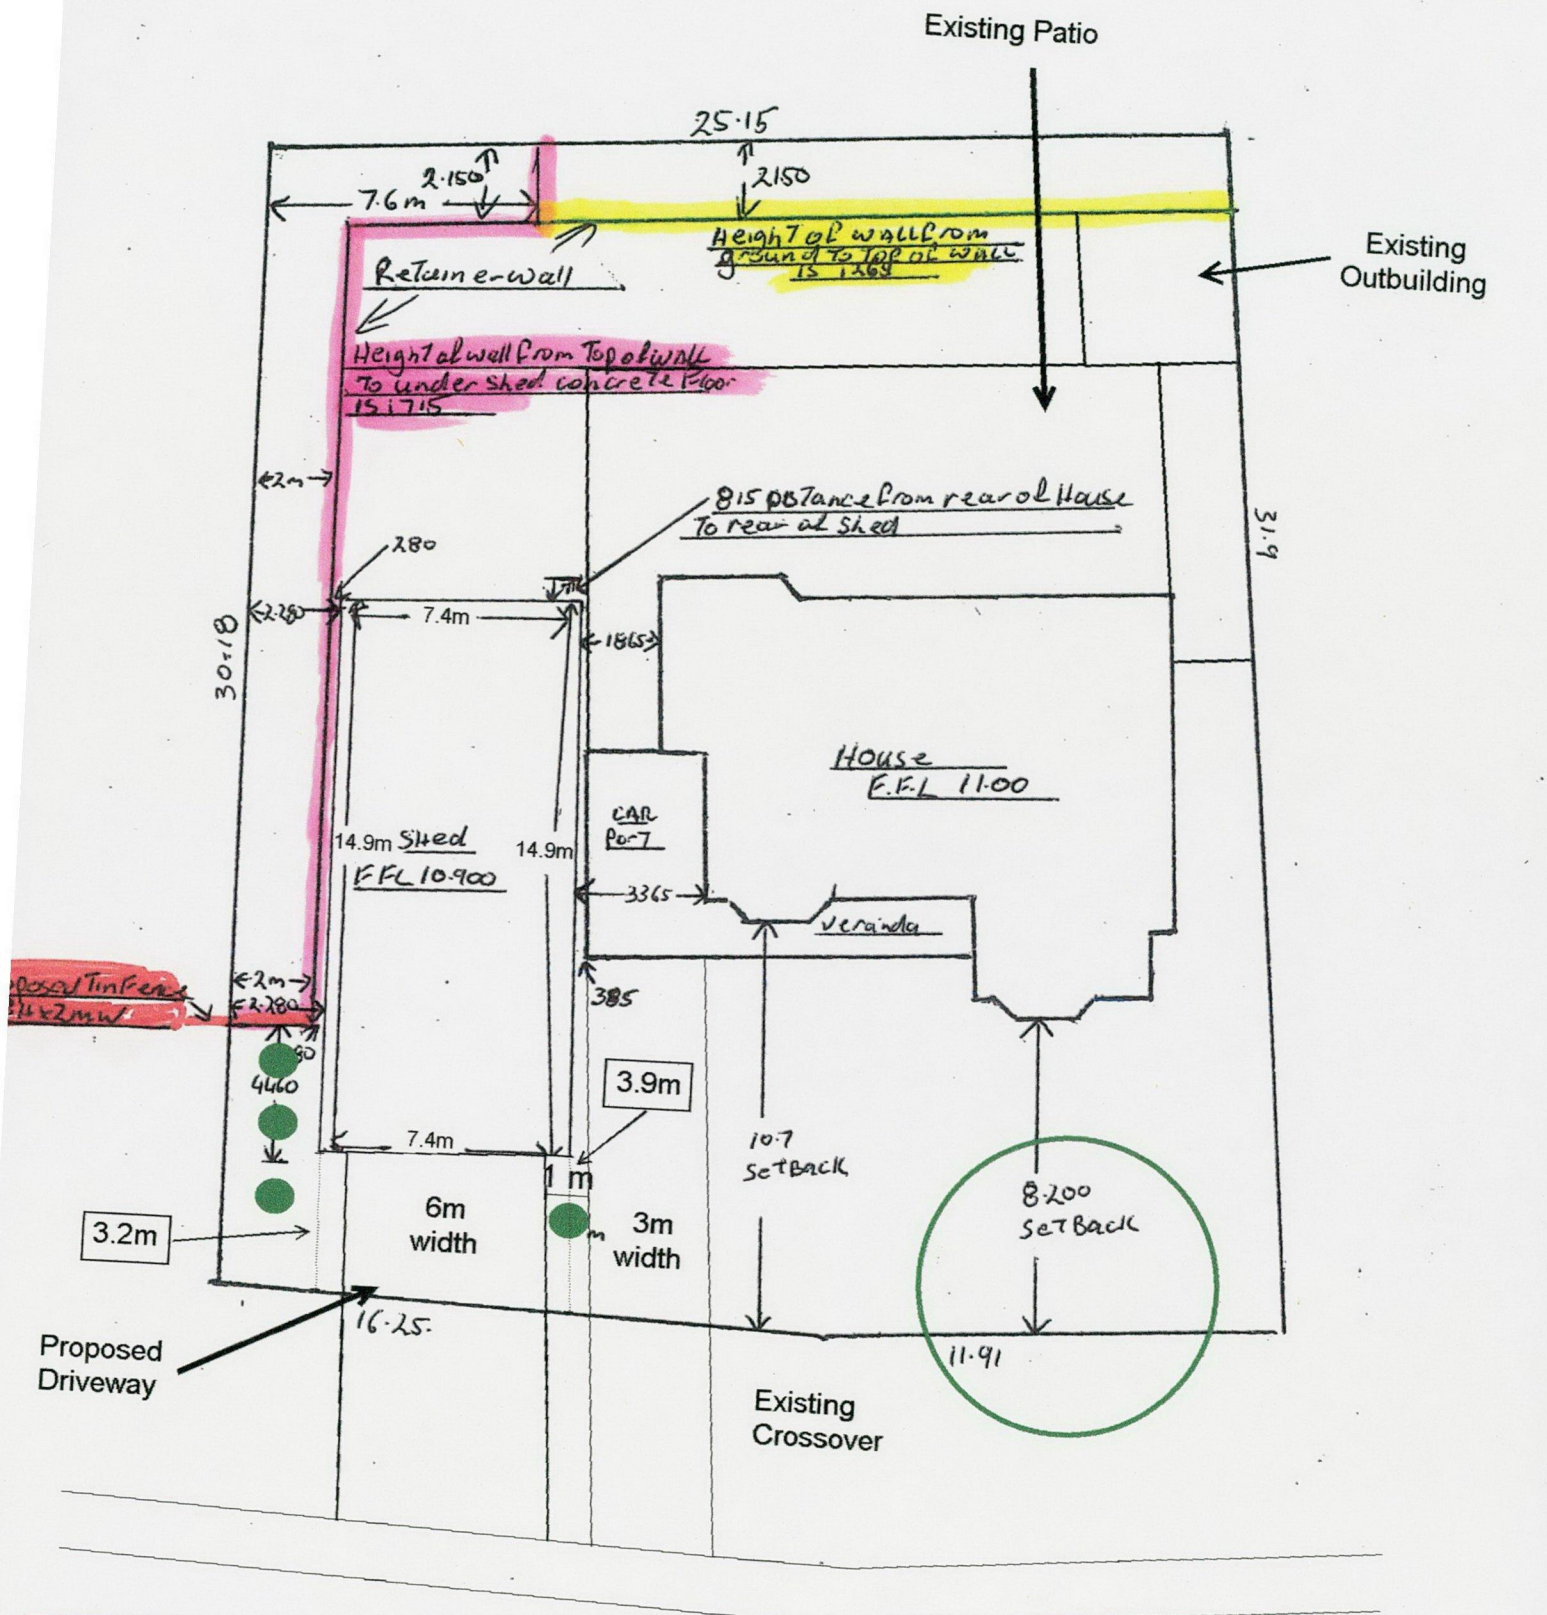 Existing Patio
25.15
2.150
2150
7.6m
Height of wall from
ground To Top of wall
is 1269
Existing
Outbuilding
Retaine-wall
Height of wall from Top of wall
To under shed concrete Floor
IS i 715
2m
815 DISTance from rear of House
To rear of shed
31.9
280
2.280
7.4m
1865
30.18
House
F.F.L 11.00
CAR
PorT
14.9m
SHed
14.9m
F FL 10.900
3365
Veranda
2m
posed Tin Fence
2.280
x2mw
385
80
4460
3.9m
7.4m
10.7
SeTBack
1 m
8.200
SeTBack
6m
width
3m
width
m
3.2m
16.25.
11.91
Proposed
Driveway
Existing
Crossover